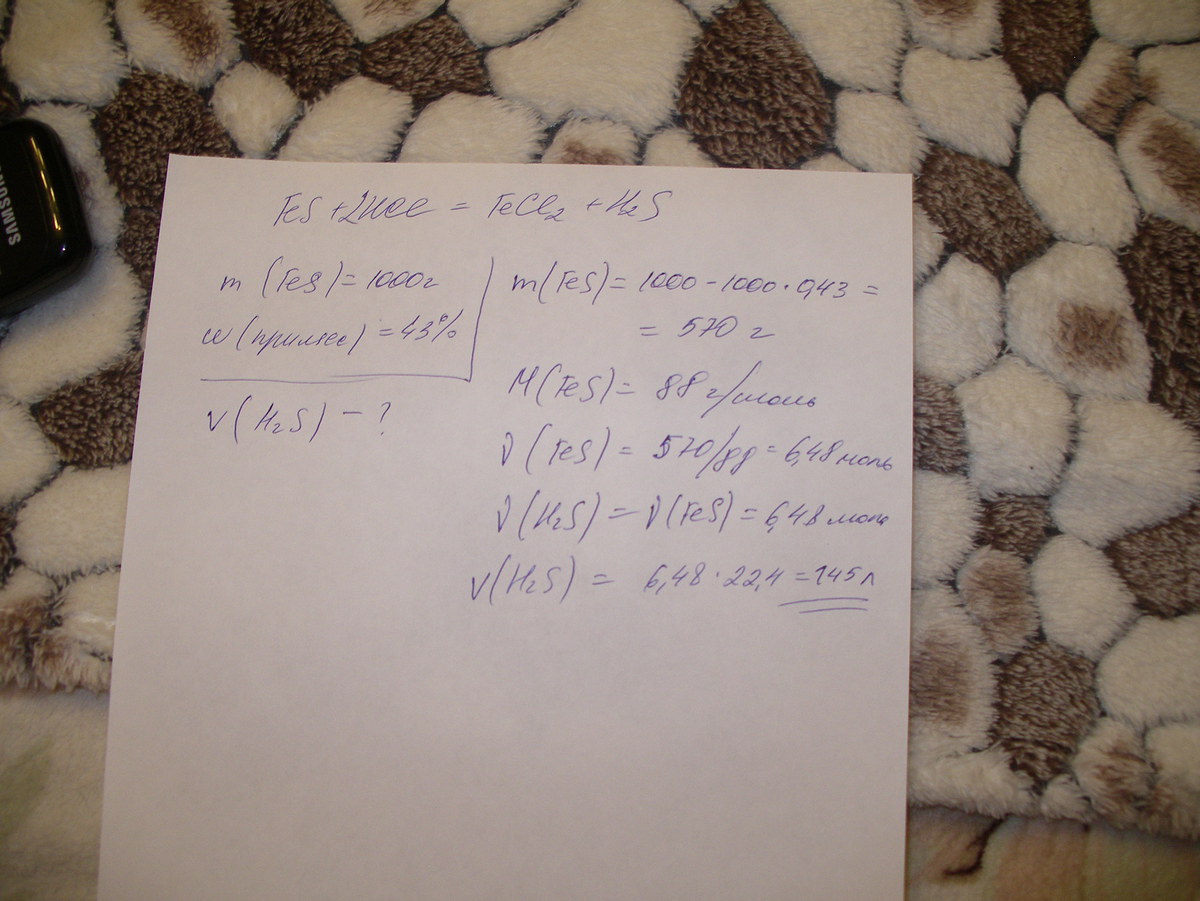 FeS + 2HCl = FeCl₂ + H₂S
m (FeS) = 1000г
ω (примес) = 43%
V (H₂S) – ?
m(FeS) = 1000 – 1000 · 0,43 =
= 570 г
M(FeS) = 88 г/моль
ν (FeS) = 570/88 = 6,48 моль
ν (H₂S) = ν (FeS) = 6,48 моль
V(H₂S) = 6,48 · 22,4 = 145 л
SAMSUNG